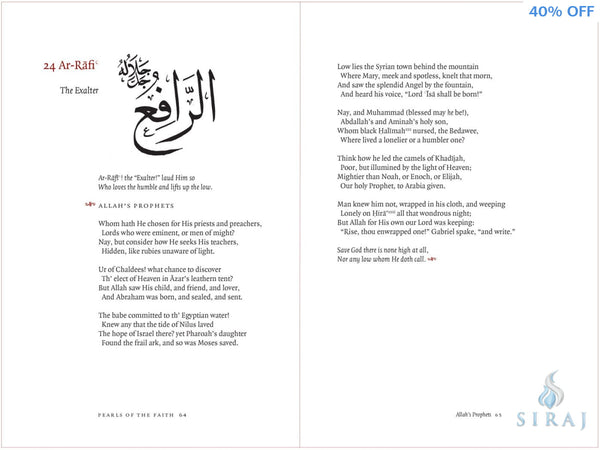 40% OFF
24 Ar-Rāfiʿ
The Exalter
الرَّافِعُ
جَلَّ جَلَالُهُ
Ar-Rāfiʿ! the “Exalter!” laud Him so
Who loves the humble and lifts up the low.
ALLAH’S PROPHETS
Whom hath He chosen for His priests and preachers,
Lords who were eminent, or men of might?
Nay, but consider how He seeks His teachers,
Hidden, like rubies unaware of light.
Ur of Chaldees! what chance to discover
Th’ elect of Heaven in Āzar’s leathern tent?
But Allah saw His child, and friend, and lover,
And Abraham was born, and sealed, and sent.
The babe committed to th’ Egyptian water!
Knew any that the tide of Nilus laved
The hope of Israel there? yet Pharoah’s daughter
Found the frail ark, and so was Moses saved.
PEARLS OF THE FAITH 64
Low lies the Syrian town behind the mountain
Where Mary, meek and spotless, knelt that morn,
And saw the splendid Angel by the fountain,
And heard his voice, “Lord ʿĪsā shall be born!”
Nay, and Muhammad (blessed may he be!),
Abdallah’s and Aminah’s holy son,
Whom black Ḥalīmah nursed, the Bedawee,
Where lived a lonelier or a humbler one?
Think how he led the camels of Khadījah,
Poor, but illumined by the light of Heaven;
Mightier than Noah, or Enoch, or Elijah,
Our holy Prophet, to Arabia given.
Man knew him not, wrapped in his cloth, and weeping
Lonely on Ḥirāʾ all that wondrous night;
But Allah for His own our Lord was keeping:
“Rise, thou enwrapped one!” Gabriel spake, “and write.”
Save God there is none high at all,
Nor any low whom He doth call.
Allah’s Prophets 65
SIRAJ